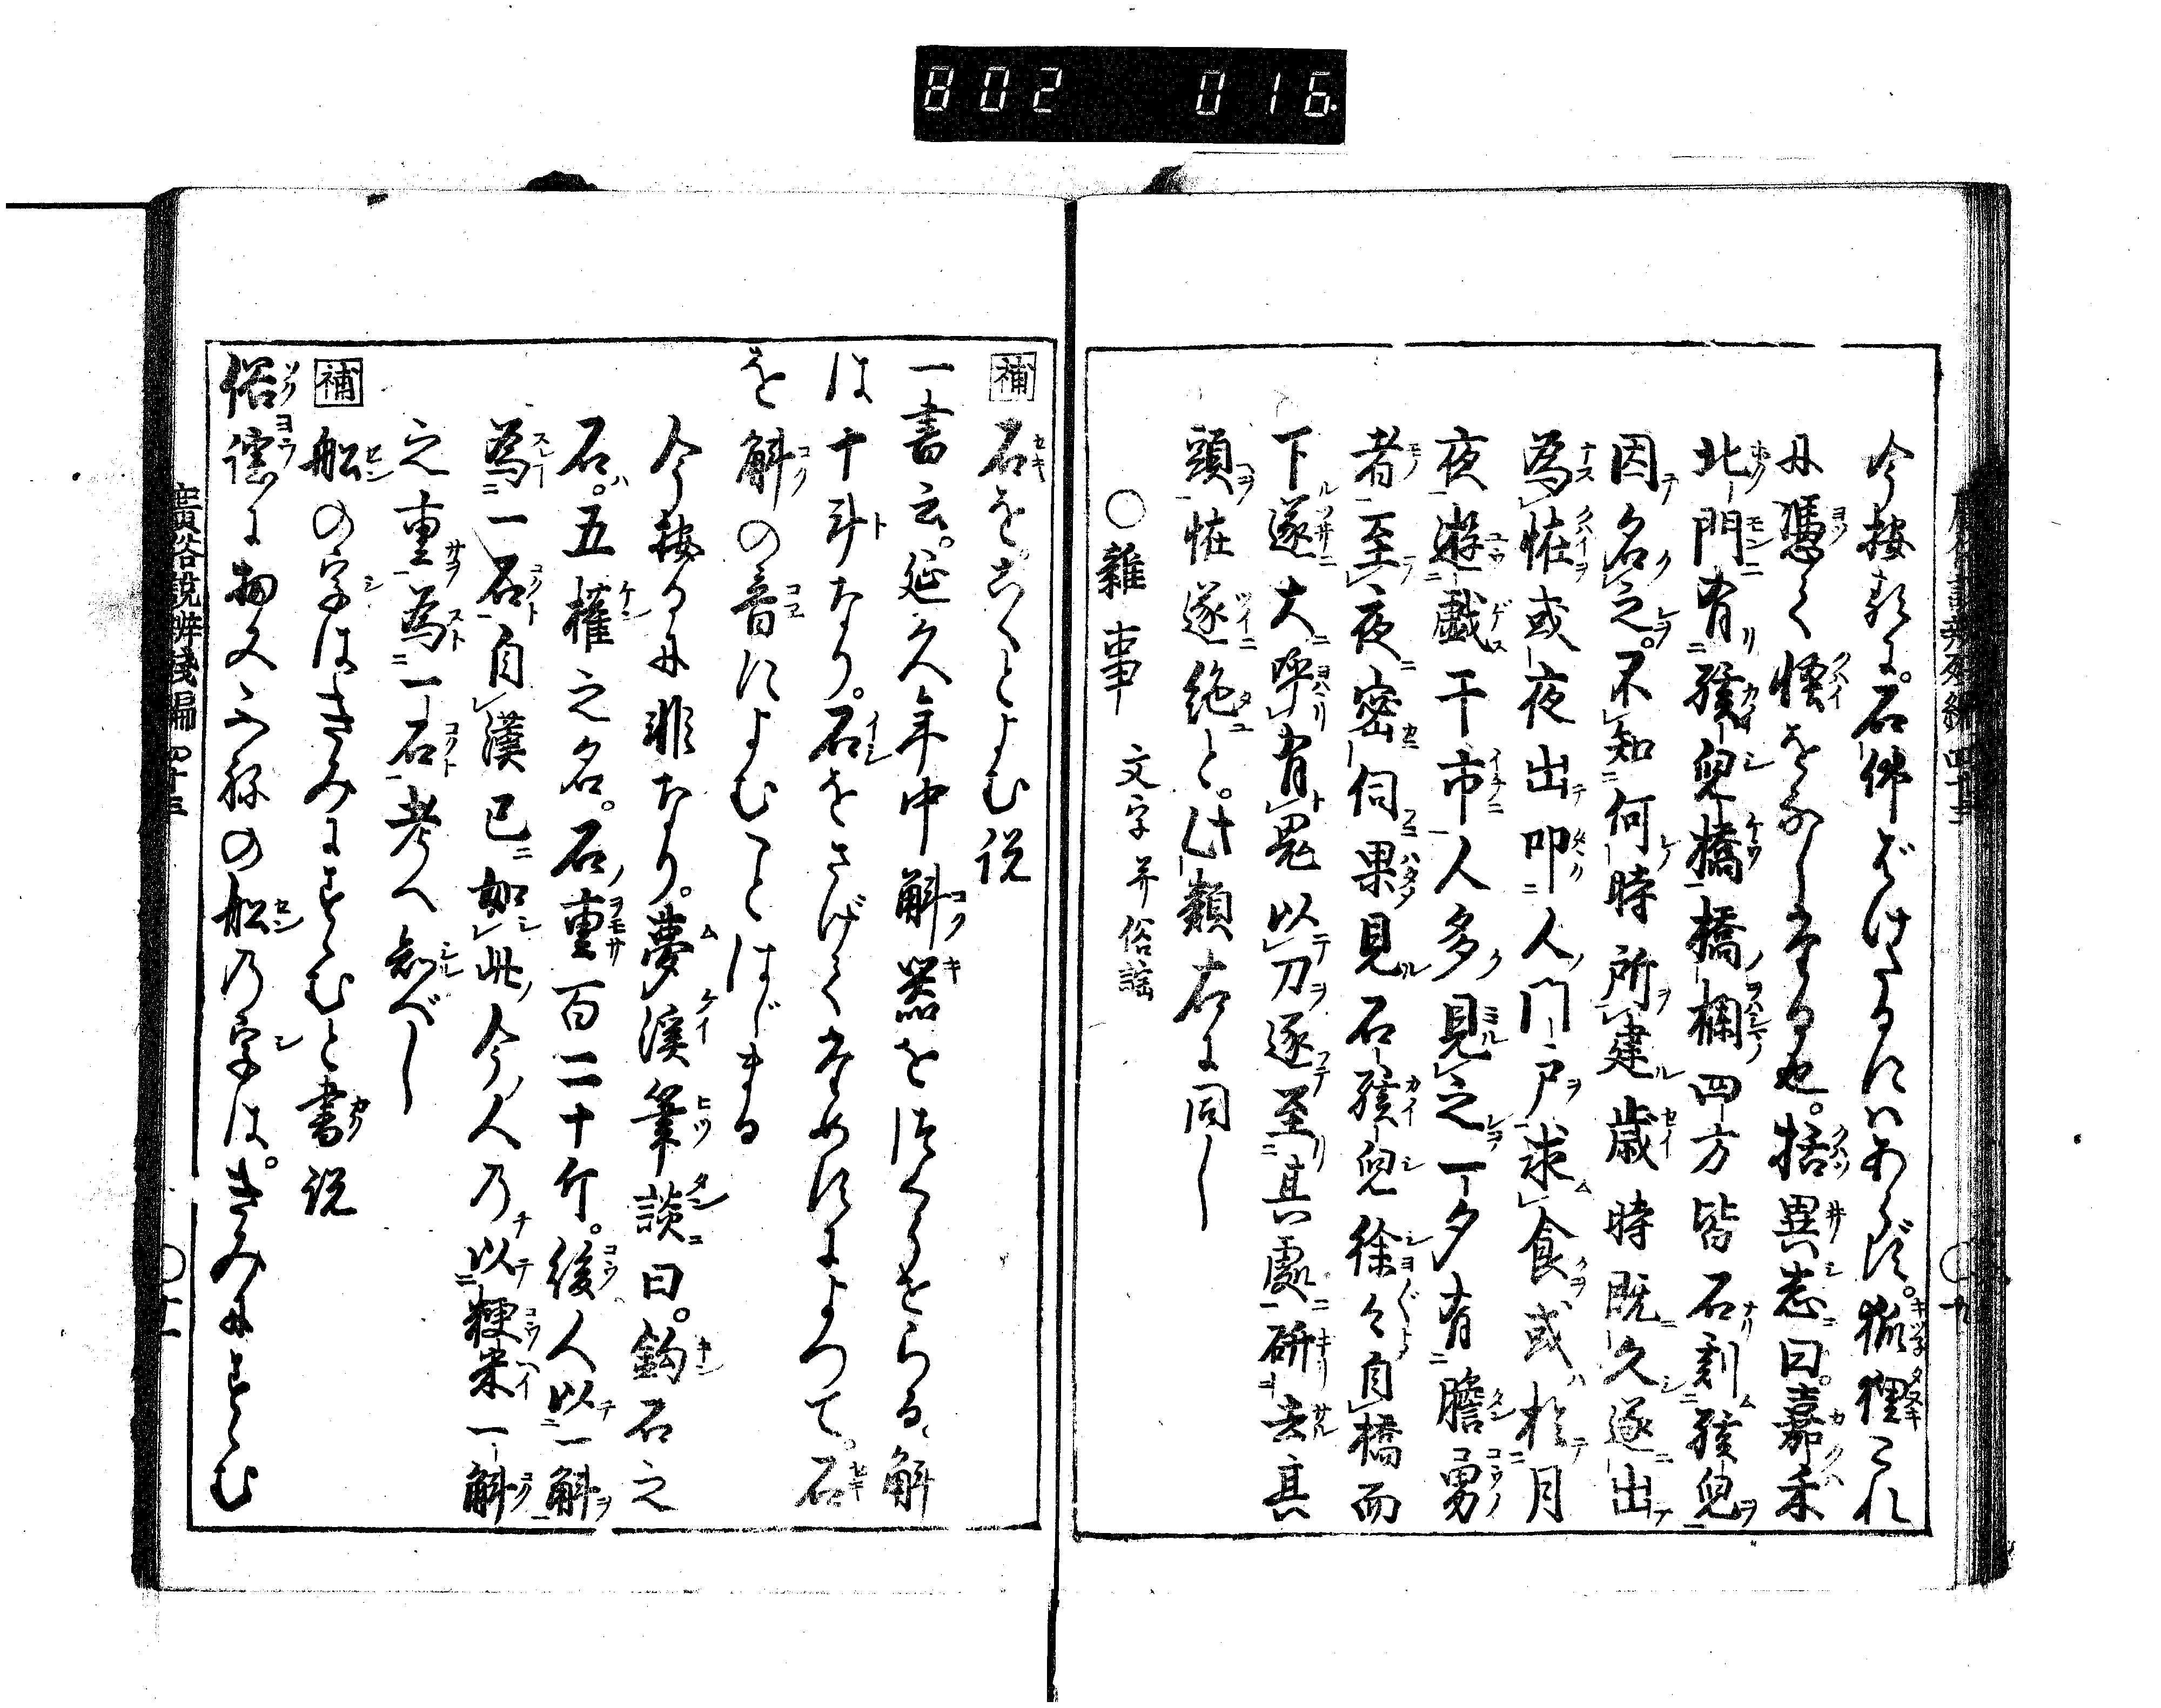 802 016
今按ずるに。石佛ばけたるにはあらず。狐狸これ
に憑て怪をなしたる也。括異志曰。嘉禾
北門有孩兒橋橋欄四方皆石刻孩兒
因名之。不知何時所建歳時既久遂出
為怪或夜出叩人門戸求食或於月
夜遊戯于市人多見之一夕有膽勇
者至夜密伺果見石孩兒徐々自橋而
下遂大呼有鬼以刀逐至其處斫去其
頭怪遂絶と。此類右に同し
○雜事 文字并俗謡
補 石をこくとよむ説
一書云。延久年中斛器をつくらせらる。斛
は十斗なり。石をさげてためすによつて。石
を斛の音によむことはじまる
今按るに非なり。夢溪筆談曰。鈎石之
石。五權之名。石重百二十斤。後人以一斛
為一石自漢已如此今人乃以粳米一斛
之重為一石考へ知べし
補 舩の字はきみにすゝむと書説
俗謡に
の舩乃字は。きみにすゝむ
廣益俗説辨残編 四十三